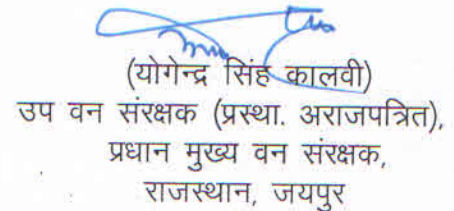 (योगेन्द्र सिंह कालवी)
उप वन संरक्षक (प्रस्था. अराजपत्रित),
प्रधान मुख्य वन संरक्षक,
राजस्थान, जयपुर